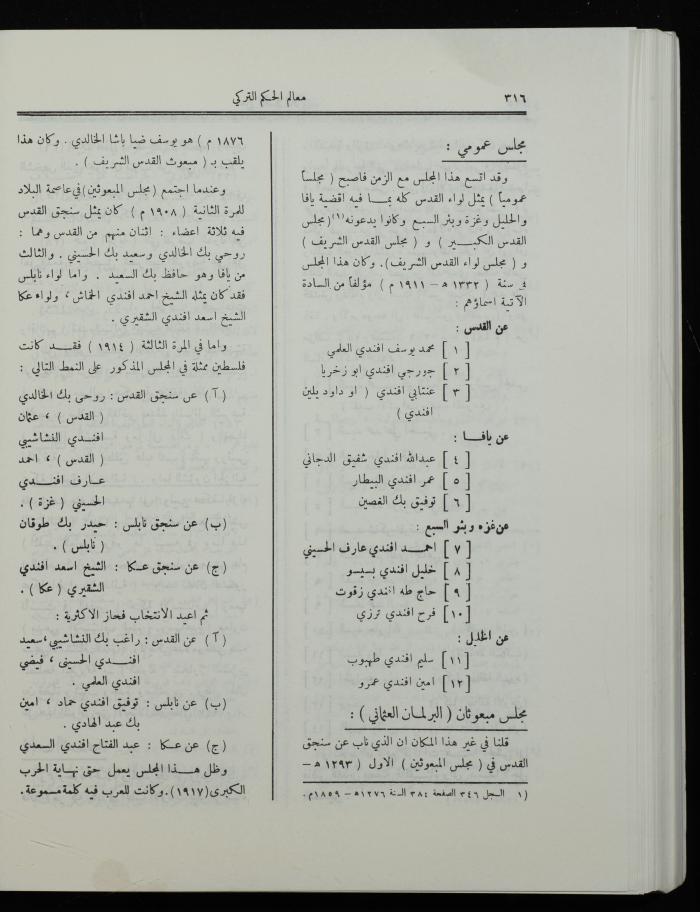 ٣١٦
معالم الحكم التركي
مجلس عمومي :
وقد اتسع هذا المجلس مع الزمن فاصبح ( مجلساً
عمومياً ) يمثل لواء القدس كله بمـا فيه اقضية يافا
والخليل وغزة وبئر السبع وكانوا يدعونه(١)(مجلس
القدس الكبـــير ) و ( مجلس القدس الشريف )
و ( مجلس لواء القدس الشريف). وكان هذا المجلس
في سنة ( ١٣٣٢ هـ – ١٩١١ م ) مؤلفاً من السادة
الآتية اسماؤهم :
عن القدس :
[ ١ ] محمد يوسف افندي العلمي
[ ٢ ] جورجي افندي ابو زخريا
[ ٣ ] عنتابي افندي ( او داود يلين
افندي )
عن يافـا :
[ ٤ ] عبدالله افندي شفيق الدجاني
[ ٥ ] عمر افندي البيطار
[ ٦ ] توفيق بك الغصين
عن غزه وبئر السبع :
[ ٧ ] احمـد افندي عارف الحسيني
[ ٨ ] خليل افندي بسيسو
[ ٩ ] حاج طه افندي زقوت
[ ١٠ ] فرح افندي ترزي
عن الخليل :
[ ١١ ] سليم افندي طهبوب
[ ١٢ ] امين افندي عمرو
مجلس مبعوثان ( البرلمان العثماني ) :
قلنا في غير هذا المكان ان الذي ناب عن سنجق
القدس في ( مجلس المبعوثين ) الاول ( ١٢٩٣ هـ –
(١ السجل ٣٤٦ الصفحة ٣٨٤ السنة ١٢٧٦هـ – ١٨٥٩م.
١٨٧٦ م ) هو يوسف ضيا باشا الخالدي . وكان هذا
يلقب بـ ( مبعوث القدس الشريف ) .
وعندما اجتمع (مجلس المبعوثين) في عاصمة البلاد
للمرة الثانية ( ١٩٠٨ م ) كان يمثل سنجق القدس
فيه ثلاثة اعضاء : اثنان منهم من القدس وهما :
روحي بك الخالدي وسعيد بك الحسيني . والثالث
من يافا وهو حافظ بك السعيد . واما لواء نابلس
فقد كان يمثله الشيخ احمد افندي الخماش ، ولواء عكا
الشيخ اسعد افندي الشقيري .
واما في المرة الثالثة ( ١٩١٤ ) فقـــد كانت
فلسطين ممثلة في المجلس المذكور على النمط التالي :
( آ ) عن سنجق القدس : روحي بك الخالدي
( القدس ) ، عثمان
افنـدي النشاشيبي
( القدس ) ، احمد
عـارف افنـــدي
الحسيني ( غزة ) .
(ب) عن سنجق نابلس : حيدر بك طوقان
( نابلس ) .
(ج) عن سنجق عـكا : الشيخ اسعد افندي
الشقيري ( عكا ) .
ثم اعيد الانتخاب فحاز الاكثرية :
( آ ) عن القدس : راغب بك النشاشيبي ، سعيد
افنـــدي الحسينى ، فيضي
افندي العلمي .
(ب) عن نابلس : توفيق افندي حماد ، امين
بك عبد الهادي .
(ج) عن عـكا : عبد الفتاح افندي السعدي
وظل هـــذا المجلس يعمل حتى نهـاية الحرب
الكبرى (١٩١٧). وكانت للعرب فيه كلمة مسموعة.